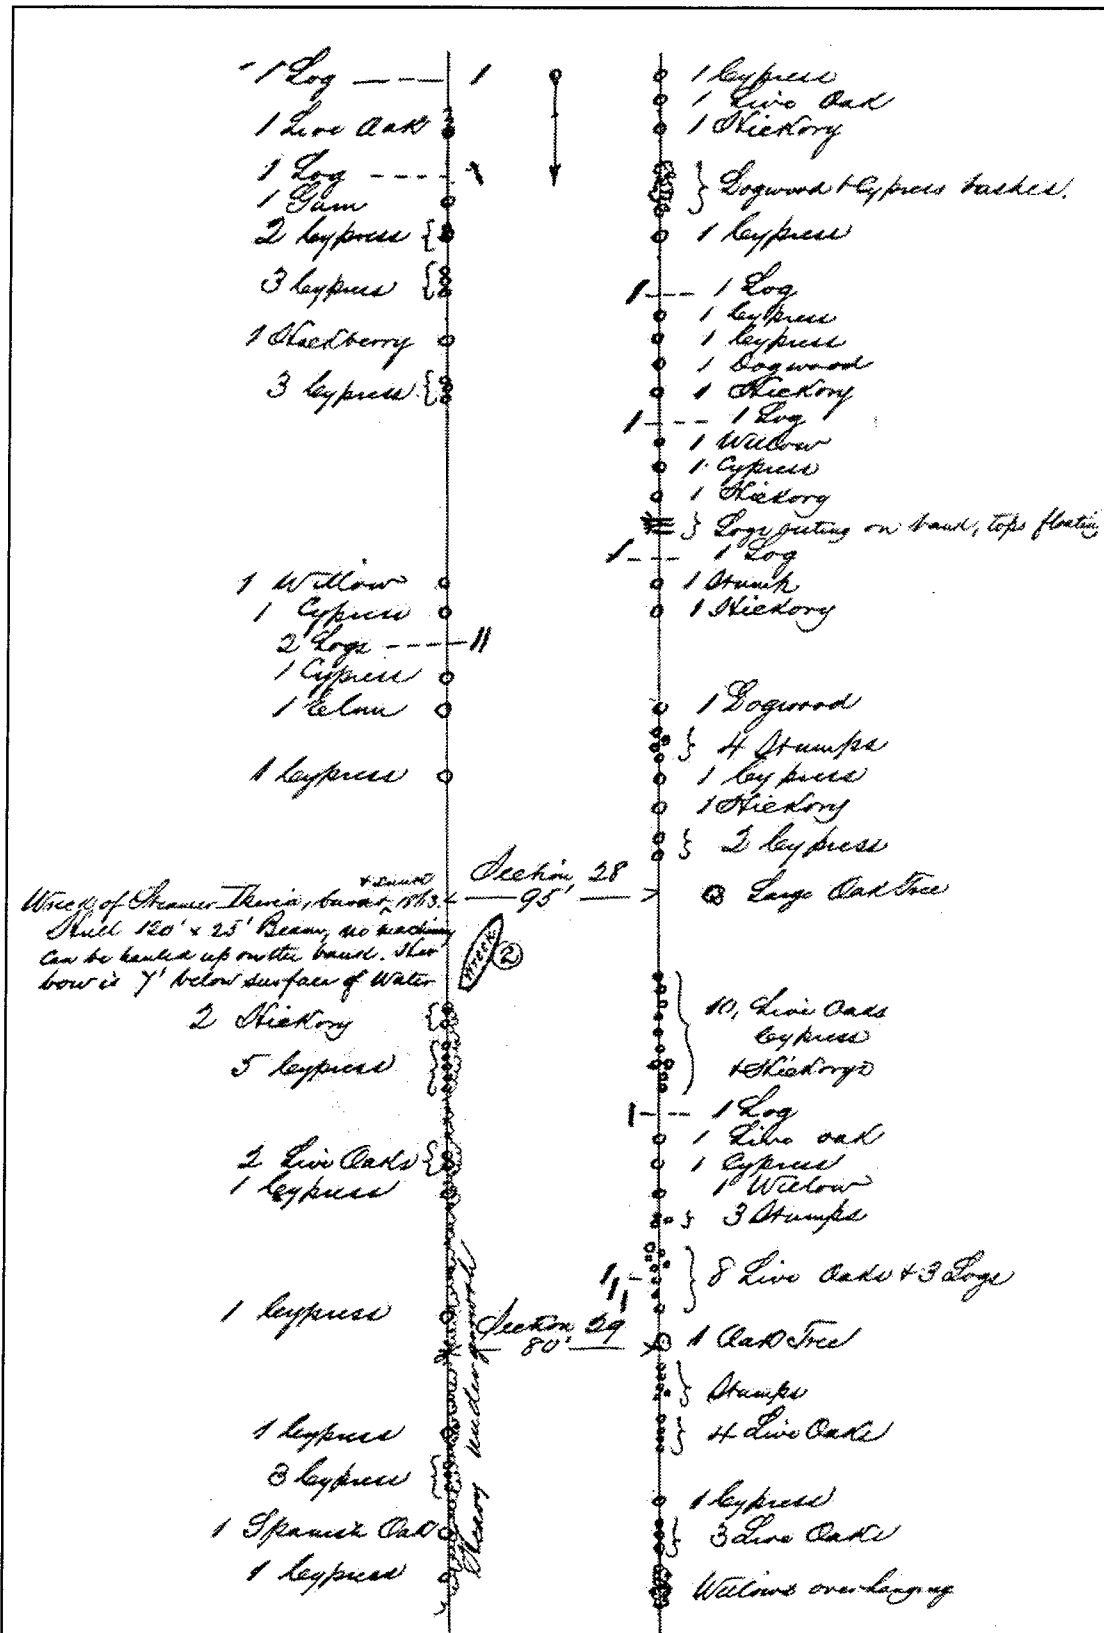 1 Log
1
1 Live Oak
1 Log
1 Gum
2 Cypress
3 Cypress
1 Hackberry
3 Cypress
1 Willow
1 Cypress
2 Logs
1 Cypress
1 Elm
1 Cypress
Wreck of Steamer Iberia, burnt + sunk 1863.
Hull 120' x 25' Beam, no machinery
can be hauled up on the bank. Her
bow is 7' below surface of Water
Wreck 2
2 Hickory
5 Cypress
2 Live Oaks
1 Cypress
1 Cypress
Heavy undergrowth
1 Cypress
3 Cypress
1 Spanish Oak
1 Cypress
Section 28
95'
Section 29
80'
1 Cypress
1 Live Oak
1 Hickory
Dogwood + Cypress bushes.
1 Cypress
1 Log
1 Cypress
1 Cypress
1 Dogwood
1 Hickory
1 Log
1 Willow
1 Cypress
1 Hickory
Logs on bank, tops floating
1 Log
1 Stump
1 Hickory
1 Dogwood
4 Stumps
1 Cypress
1 Hickory
2 Cypress
Large Oak Tree
10, Live Oaks
Cypress
+ Hickorys
1 Log
1 Live oak
1 Cypress
1 Willow
3 Stumps
8 Live Oaks + 3 Logs
1 Oak Tree
Stumps
4 Live Oaks
1 Cypress
3 Live Oaks
Willows overhanging